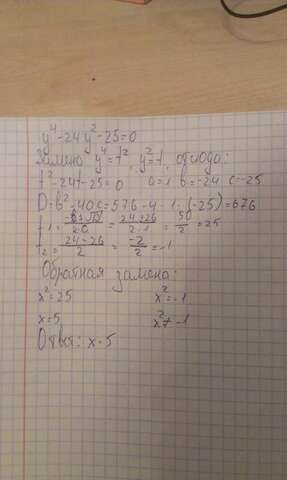 y⁴-24y²-25=0
Замена y⁴=t², y²=t, отсюда:
t²-24t-25=0 a=1 b=-24 c=-25
D=b²-4ac=576-4·1·(-25)=676
t₁=(-b+√D)/2a=(24+26)/(2·1)=50/2=25
t₂=(24-26)/2=-2/2=-1
Обратная замена:
x²=25 x²=-1
x=5 x²≠-1
Ответ: x=5